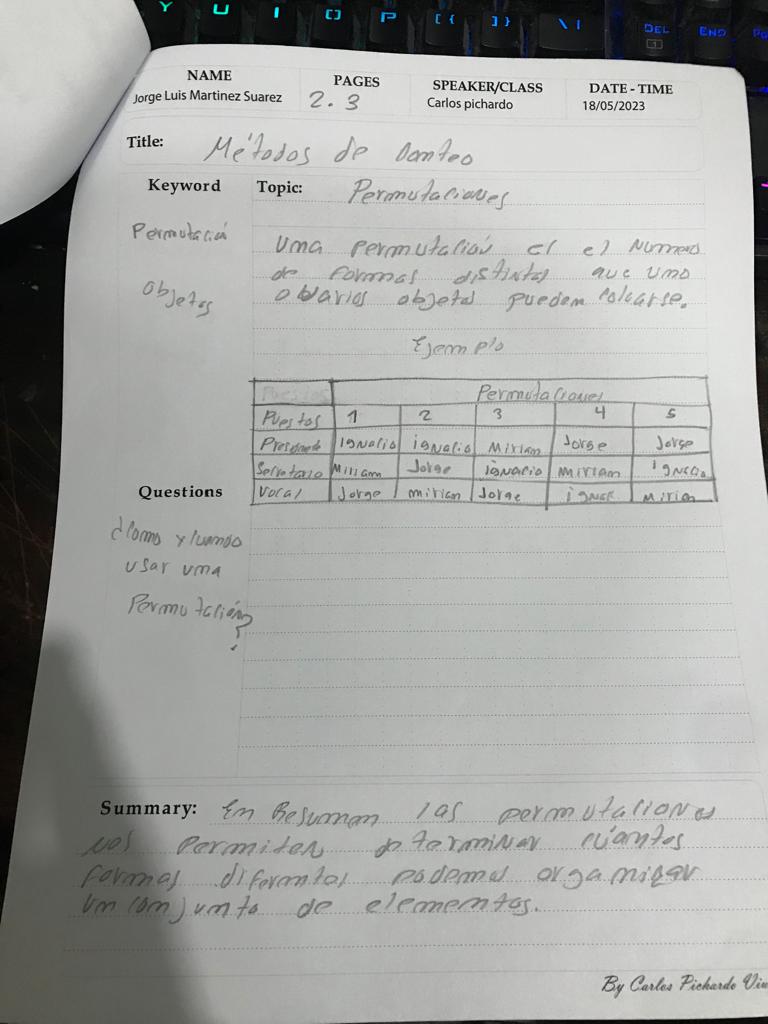 Y U I [] P [{ ]} \| DEL END
1
NAME PAGES SPEAKER/CLASS DATE - TIME
Jorge Luis Martinez Suarez 2.3 Carlos pichardo 18/05/2023
Title: Métodos de Conteo
Keyword Topic: Permutaciones
Permutación
Objetos
Una permutación es el numero
de formas distintas que uno
o varios objetos pueden colcarse.
Ejemplo
Puestos Permutaciones
Puestos 1 2 3 4 5
Presidente ignacio ignacio Miriam Jorge Jorge
Secretario Miriam Jorge ignacio miriam ignacio
Vocal Jorge miriam Jorge ignac mirian
Questions
¿Como y cuando
usar una
Permutación
?
Summary: En Resumen las permutaciones
nos permiten determinar cuántas
formas diferentes podemos organizar
un conjunto de elementos.
By Carlos Pichardo Viu